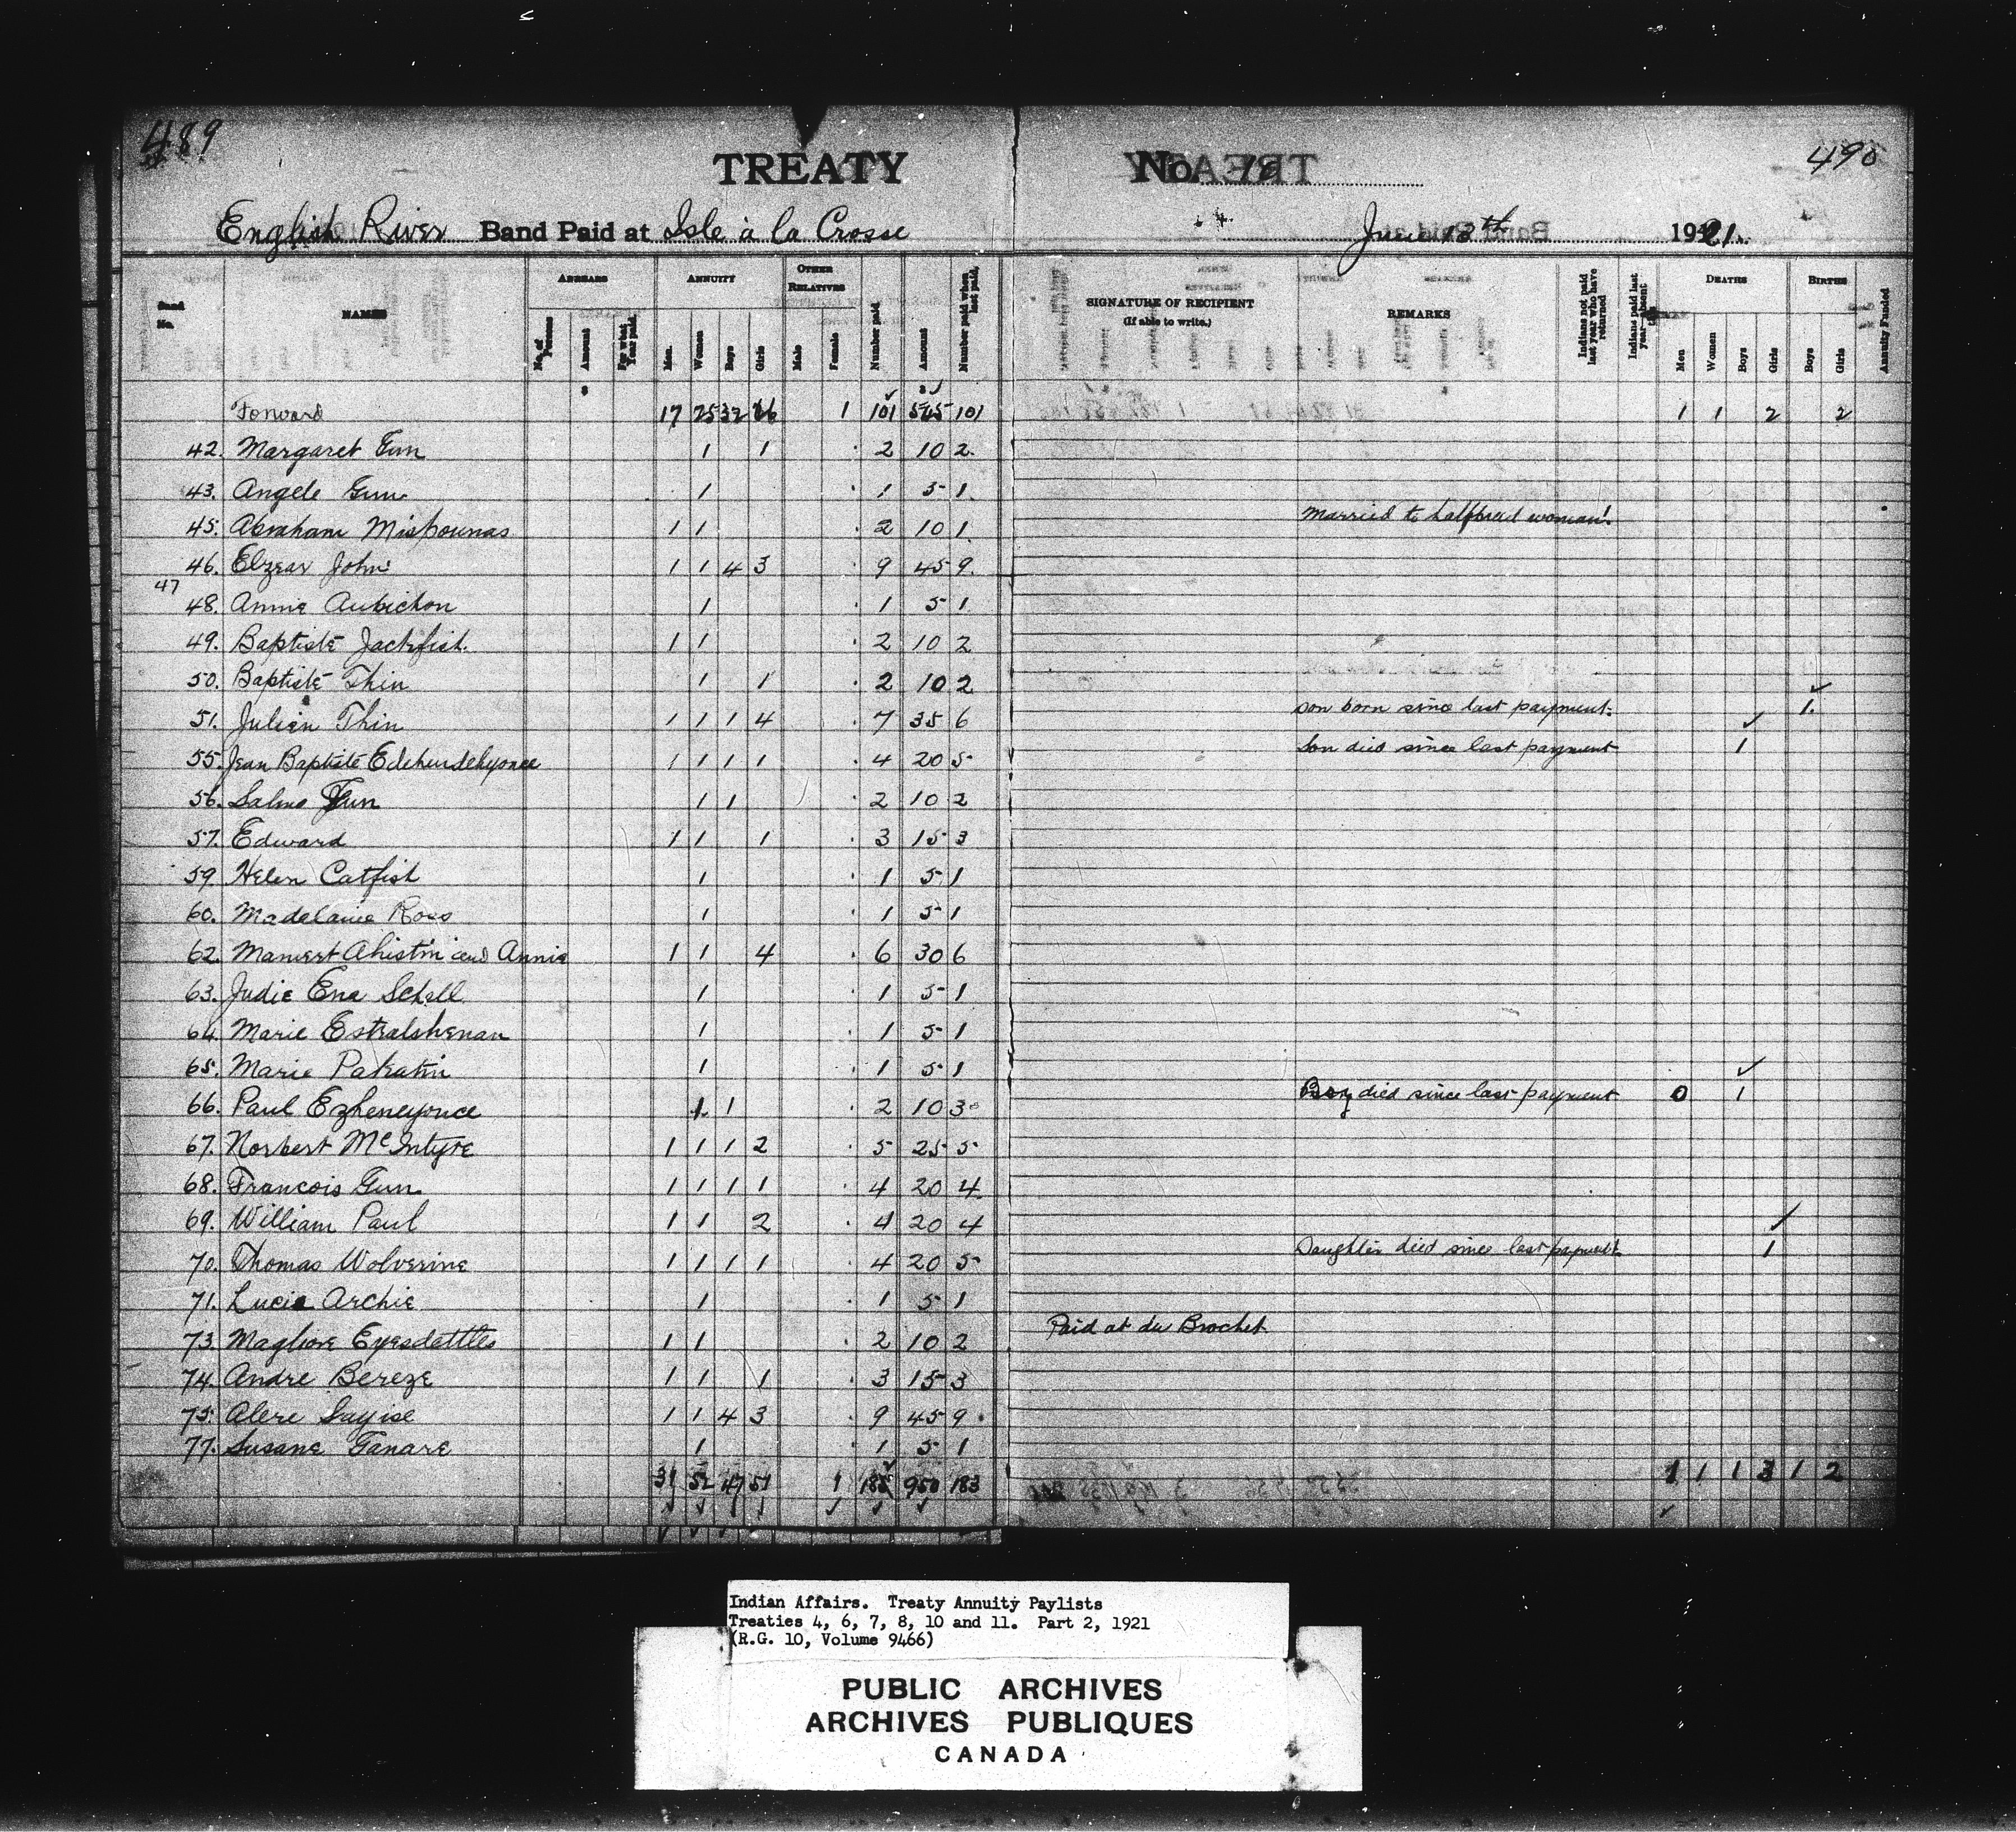 489
490
TREATY No. 10
English River Band Paid at Isle à la Crosse June 13th 1921.
Band No. NAMES ARREARS ANNUITY OTHER RELATIVES Number paid Amount Number paid when last paid. SIGNATURE OF RECIPIENT REMARKS Indians not paid last year who have returned Indians paid last year absent DEATHS BIRTHS Annuity Funded
No. of Persons Amount For what Year paid. Men. Women Boys Girls Male Female (If able to write.) Men Women Boys Girls Boys Girls
Forward 17 25 32 26 1 101 545 101 1 1 2 2
42. Margaret Gun 1 1 2 10 2.
43. Angele Gun 1 1 5 1.
45. Abraham Mispounas 1 1 2 10 1. Married to halfbreed woman.
46. Elzear John 1 1 4 3 9 45 9.
47
48. Annie Aubichon 1 1 5 1
49. Baptiste Jackfish. 1 1 2 10 2
50. Baptiste Thin 1 1 2 10 2
51. Julien Thin 1 1 1 4 7 35 6 Son born since last payment. 1.
55. Jean Baptiste Edehendehyonce 1 1 1 1 4 20 5 Son died since last payment 1
56. Salmo Gun 1 1 2 10 2
57. Edward 1 1 1 3 15 3
59 Helen Catfish 1 1 5 1
60. Madelaine Ross 1 1 5 1
62. Manwest Ahistin and Annie 1 1 4 6 30 6
63. Judie Ena Schell 1 1 5 1
64 Marie Estralshenan 1 1 5 1
65. Marie Pakatin 1 1 5 1
66. Paul Ezheneyonce 1 1 2 10 3 Boy died since last payment 0 1
67. Norbert McIntyre 1 1 1 2 5 25 5
68. Francois Gun 1 1 1 1 4 20 4.
69. William Paul 1 1 2 4 20 4
70. Thomas Wolverine 1 1 1 1 4 20 5 Daughter died since last payment 1
71. Lucie Archie 1 1 5 1
73. Magliore Eyesdettles 1 1 2 10 2 Paid at du Brochet.
74. Andre Bereze 1 1 1 3 15 3
75. Alere Sayise 1 1 4 3 9 45 9.
77. Susane Tanare 1 1 5 1
31 52 47 51 1 185 950 183 1 1 1 3 1 2
Indian Affairs. Treaty Annuity Paylists
Treaties 4, 6, 7, 8, 10 and 11. Part 2, 1921
(R.G. 10, Volume 9466)
PUBLIC ARCHIVES
ARCHIVES PUBLIQUES
CANADA